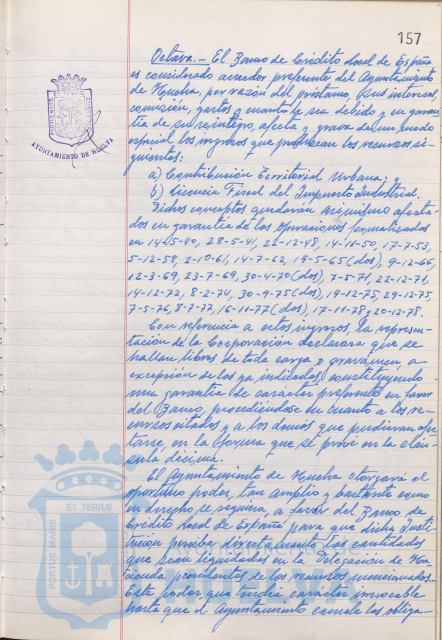 157
Octava.- El Banco de Crédito Local de España
es considerado acreedor preferente del Ayuntamiento
de Huelva, por razón del préstamo, sus intereses,
comisión, gastos y cuanto le sea debido y en garan-
tía de su reintegro, afecta y grava de un modo
especial los ingresos que produzcan los recursos si-
guientes:
a) Contribución Territorial Urbana; y
b) Licencia Fiscal del Impuesto Industrial.
Dichos conceptos quedarán asimismo afecta-
dos en garantía de las operaciones formalizadas
en 14-5-40, 28-5-41, 22-12-48, 14-11-50, 17-7-53,
5-12-58, 2-10-61, 14-7-62, 19-5-65(dos), 9-12-66,
12-3-69, 23-7-69, 30-4-70(dos), 7-5-71, 22-12-71,
14-12-72, 8-2-74, 30-9-75(dos), 19-12-75, 29-12-75,
7-5-76, 8-7-77, 16-11-77(dos), 17-11-78 y 20-12-78.
Con referencia a estos ingresos, la represen-
tación de la Corporación declarara que se
hallan libres de toda carga o gravamen, a
excepción de los ya indicados, constituyendo
una garantía de carácter preferente en favor
del Banco, procediéndose en cuanto a los re-
cursos citados y a los demás que pudieran afec-
tarse, en la forma que se prevé en la cláu-
sula décima.
El Ayuntamiento de Huelva otorgará el
oportuno poder, tan amplio y bastante como
en derecho se requiera, a favor del Banco de
Crédito Local de España para que dicha Insti-
tución perciba directamente las cantidades
que sean liquidadas en la Delegación de Ha-
cienda procedentes de los recursos mencionados.
Este poder que tendrá carácter irrevocable
hasta que el Ayuntamiento cancele las obliga-
AYUNTAMIENTO DE HUELVA
PORTUS MARIS
ET TERRÆ